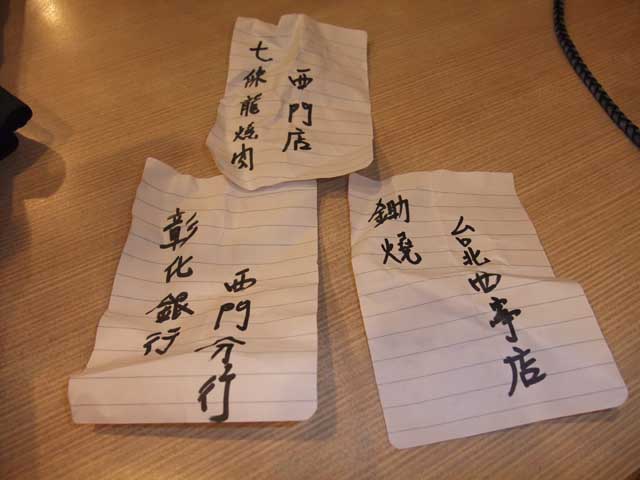 七條龍燒肉
西門店
彰化銀行
西門分行
鋤燒
台北西亭店